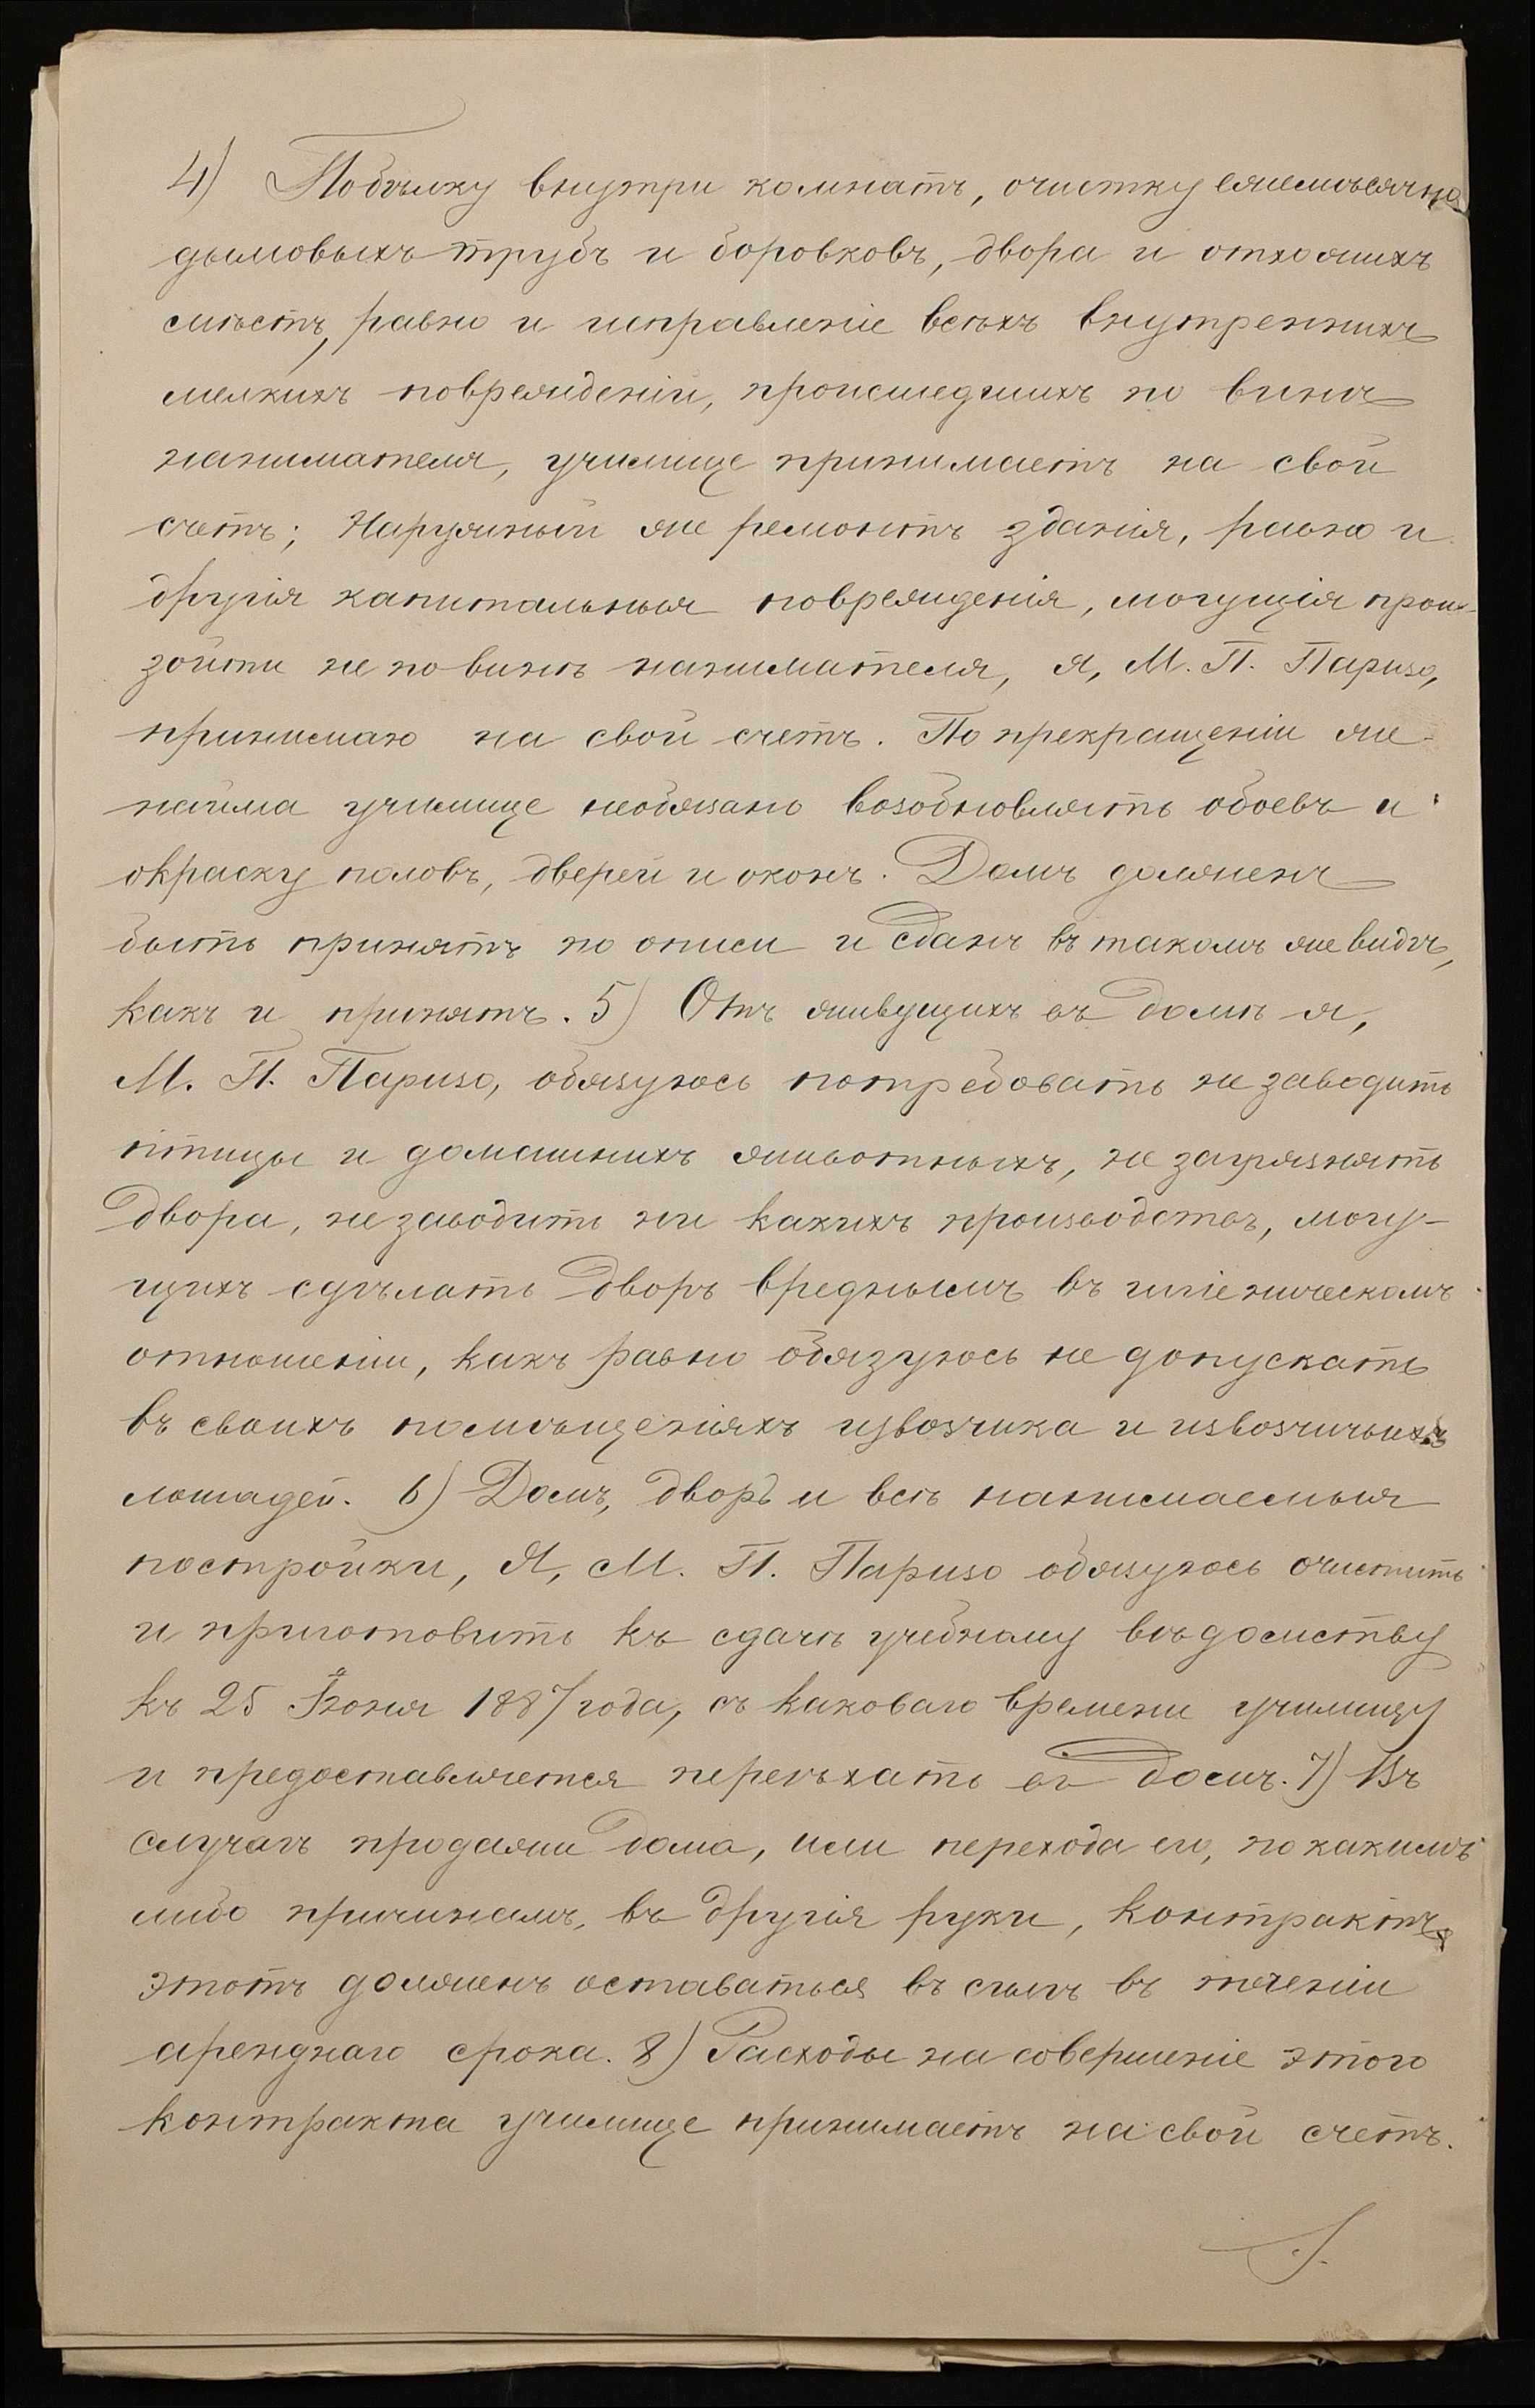 4) Побѣлку внутри комнатъ, очистку ежемѣсячно
дымовыхъ трубъ и боровковъ, двора и отхожихъ
мѣстъ, равно и исправленіе всѣхъ внутреннихъ
мелкихъ поврежденій, происшедшихъ по винѣ
нанимателя, училище принимаетъ на свой
счетъ; Наружный же ремонтъ зданія, равно и
другія капитальныя поврежденія, могущія прои-
зойти не по винѣ нанимателя, я, М. П. Паризо,
принимаю на свой счетъ. По прекращеніи же
найма училище необязано возобновлять обоевъ и
окраску половъ, дверей и оконъ. Домъ долженъ
быть принятъ по описи и сданъ въ такомъ же видѣ,
какъ и принятъ. 5) Отъ живущихъ въ домѣ я,
М. П. Паризо, обязуюсь потребовать не заводить
птицы и домашнихъ животныхъ, не загрязнять
двора, не заводить ни какихъ производствъ, могу-
щихъ сдѣлать дворъ вреднымъ въ гигіеническомъ
отношеніи, какъ равно обязуюсь не допускать
въ своихъ помѣщеніяхъ извозчика и извозчичьихъ
лошадей. 6) Домъ, дворъ и всѣ нанимаемыя
постройки, Я, М. П. Паризо обязуюсь очистить
и приготовить къ сдачѣ учебному вѣдомству
къ 25 Іюня 1887 года, съ каковаго времени училищу
и предоставляется переѣхать въ домъ. 7) Въ
случаѣ продажи дома, или перехода его, по какимъ
либо причинамъ, въ другія руки, контрактъ
этотъ долженъ оставаться въ силѣ въ теченіи
аренднаго срока. 8) Расходы на совершеніе этого
контракта училище принимаетъ на свой счетъ.